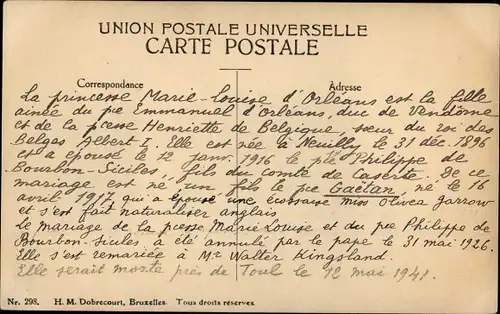 UNION POSTALE UNIVERSELLE
CARTE POSTALE
Correspondance Adresse
La princesse Marie-Louise d'Orléans est la fille
ainée du pce Emmanuel d'Orléans, duc de Vendôme
et de la pcesse Henriette de Belgique, sœur du roi des
Belges Albert I. Elle est née à Neuilly, le 31 déc. 1896
et a épousé le 12 janv. 1916 le pce Philippe de
Bourbon-Siciles, fils du comte de Caserte. De ce
mariage est né un fils le pce Gaëtan, né le 16
avril 1917, qui a épousé une écossaise miss Olivea Yarrow
et s'est fait naturaliser anglais
Le mariage de la pcesse Marie Louise et du pce Philippe de
Bourbon-Siciles a été annulé par le pape le 31 mai 1926.
Elle s'est remariée à Mr Walter Kingsland.
Elle serait morte près de Toul le 12 mai 1941.
Nr. 298. H. M. Dobrecourt, Bruxelles. Tous droits réservés.